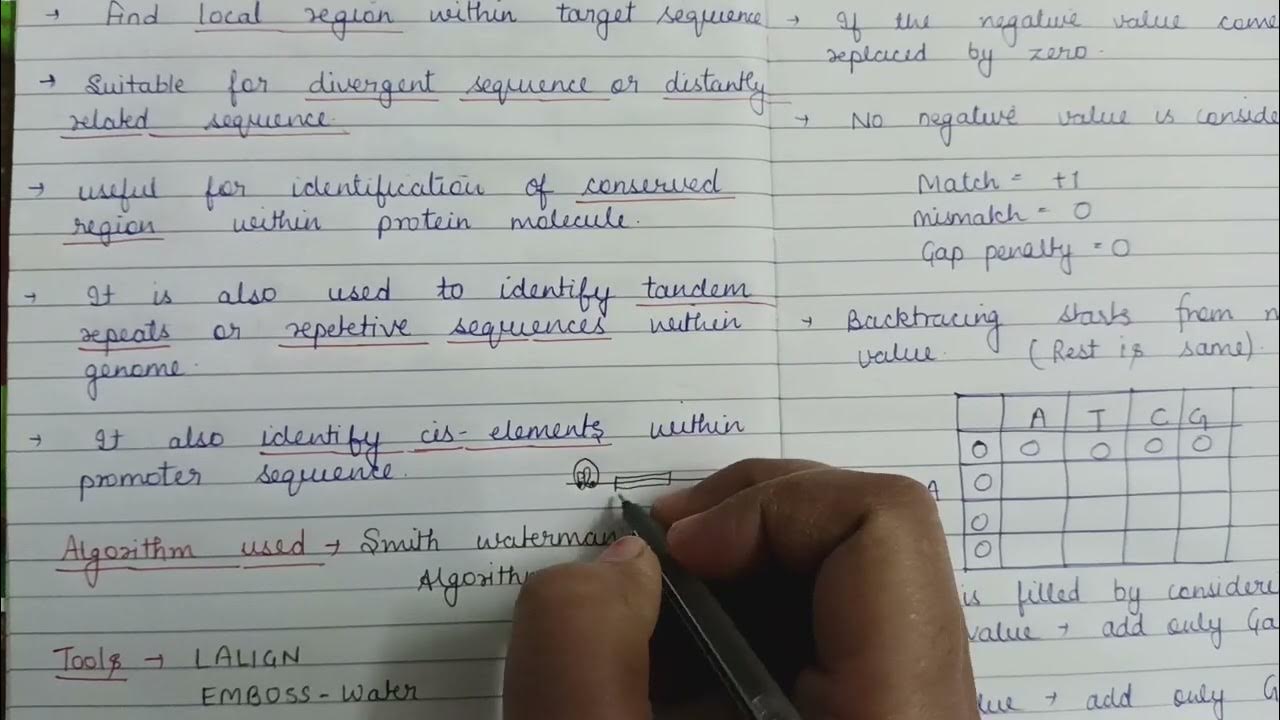 → Find local region within target sequence
→ Suitable for divergent sequence or distantly
related sequence.
→ useful for identification of conserved
region within protein molecule.
→ It is also used to identify tandem
repeats or repetetive sequences within
genome.
→ It also identify cis-elements within
promoter sequence.
Algorithm used → Smith waterman
Algorithm
Tools → LALIGN
EMBOSS-Water
→ If the negative value come
replaced by zero.
→ No negative value is conside
Match = +1
mismatch = 0
Gap penalty = 0
→ Backtracing starts from
value. (Rest is same).
A T C G
0 0 0 0 0
A 0
0
0
is filled by consideri
value → add only Ga
→ add only G